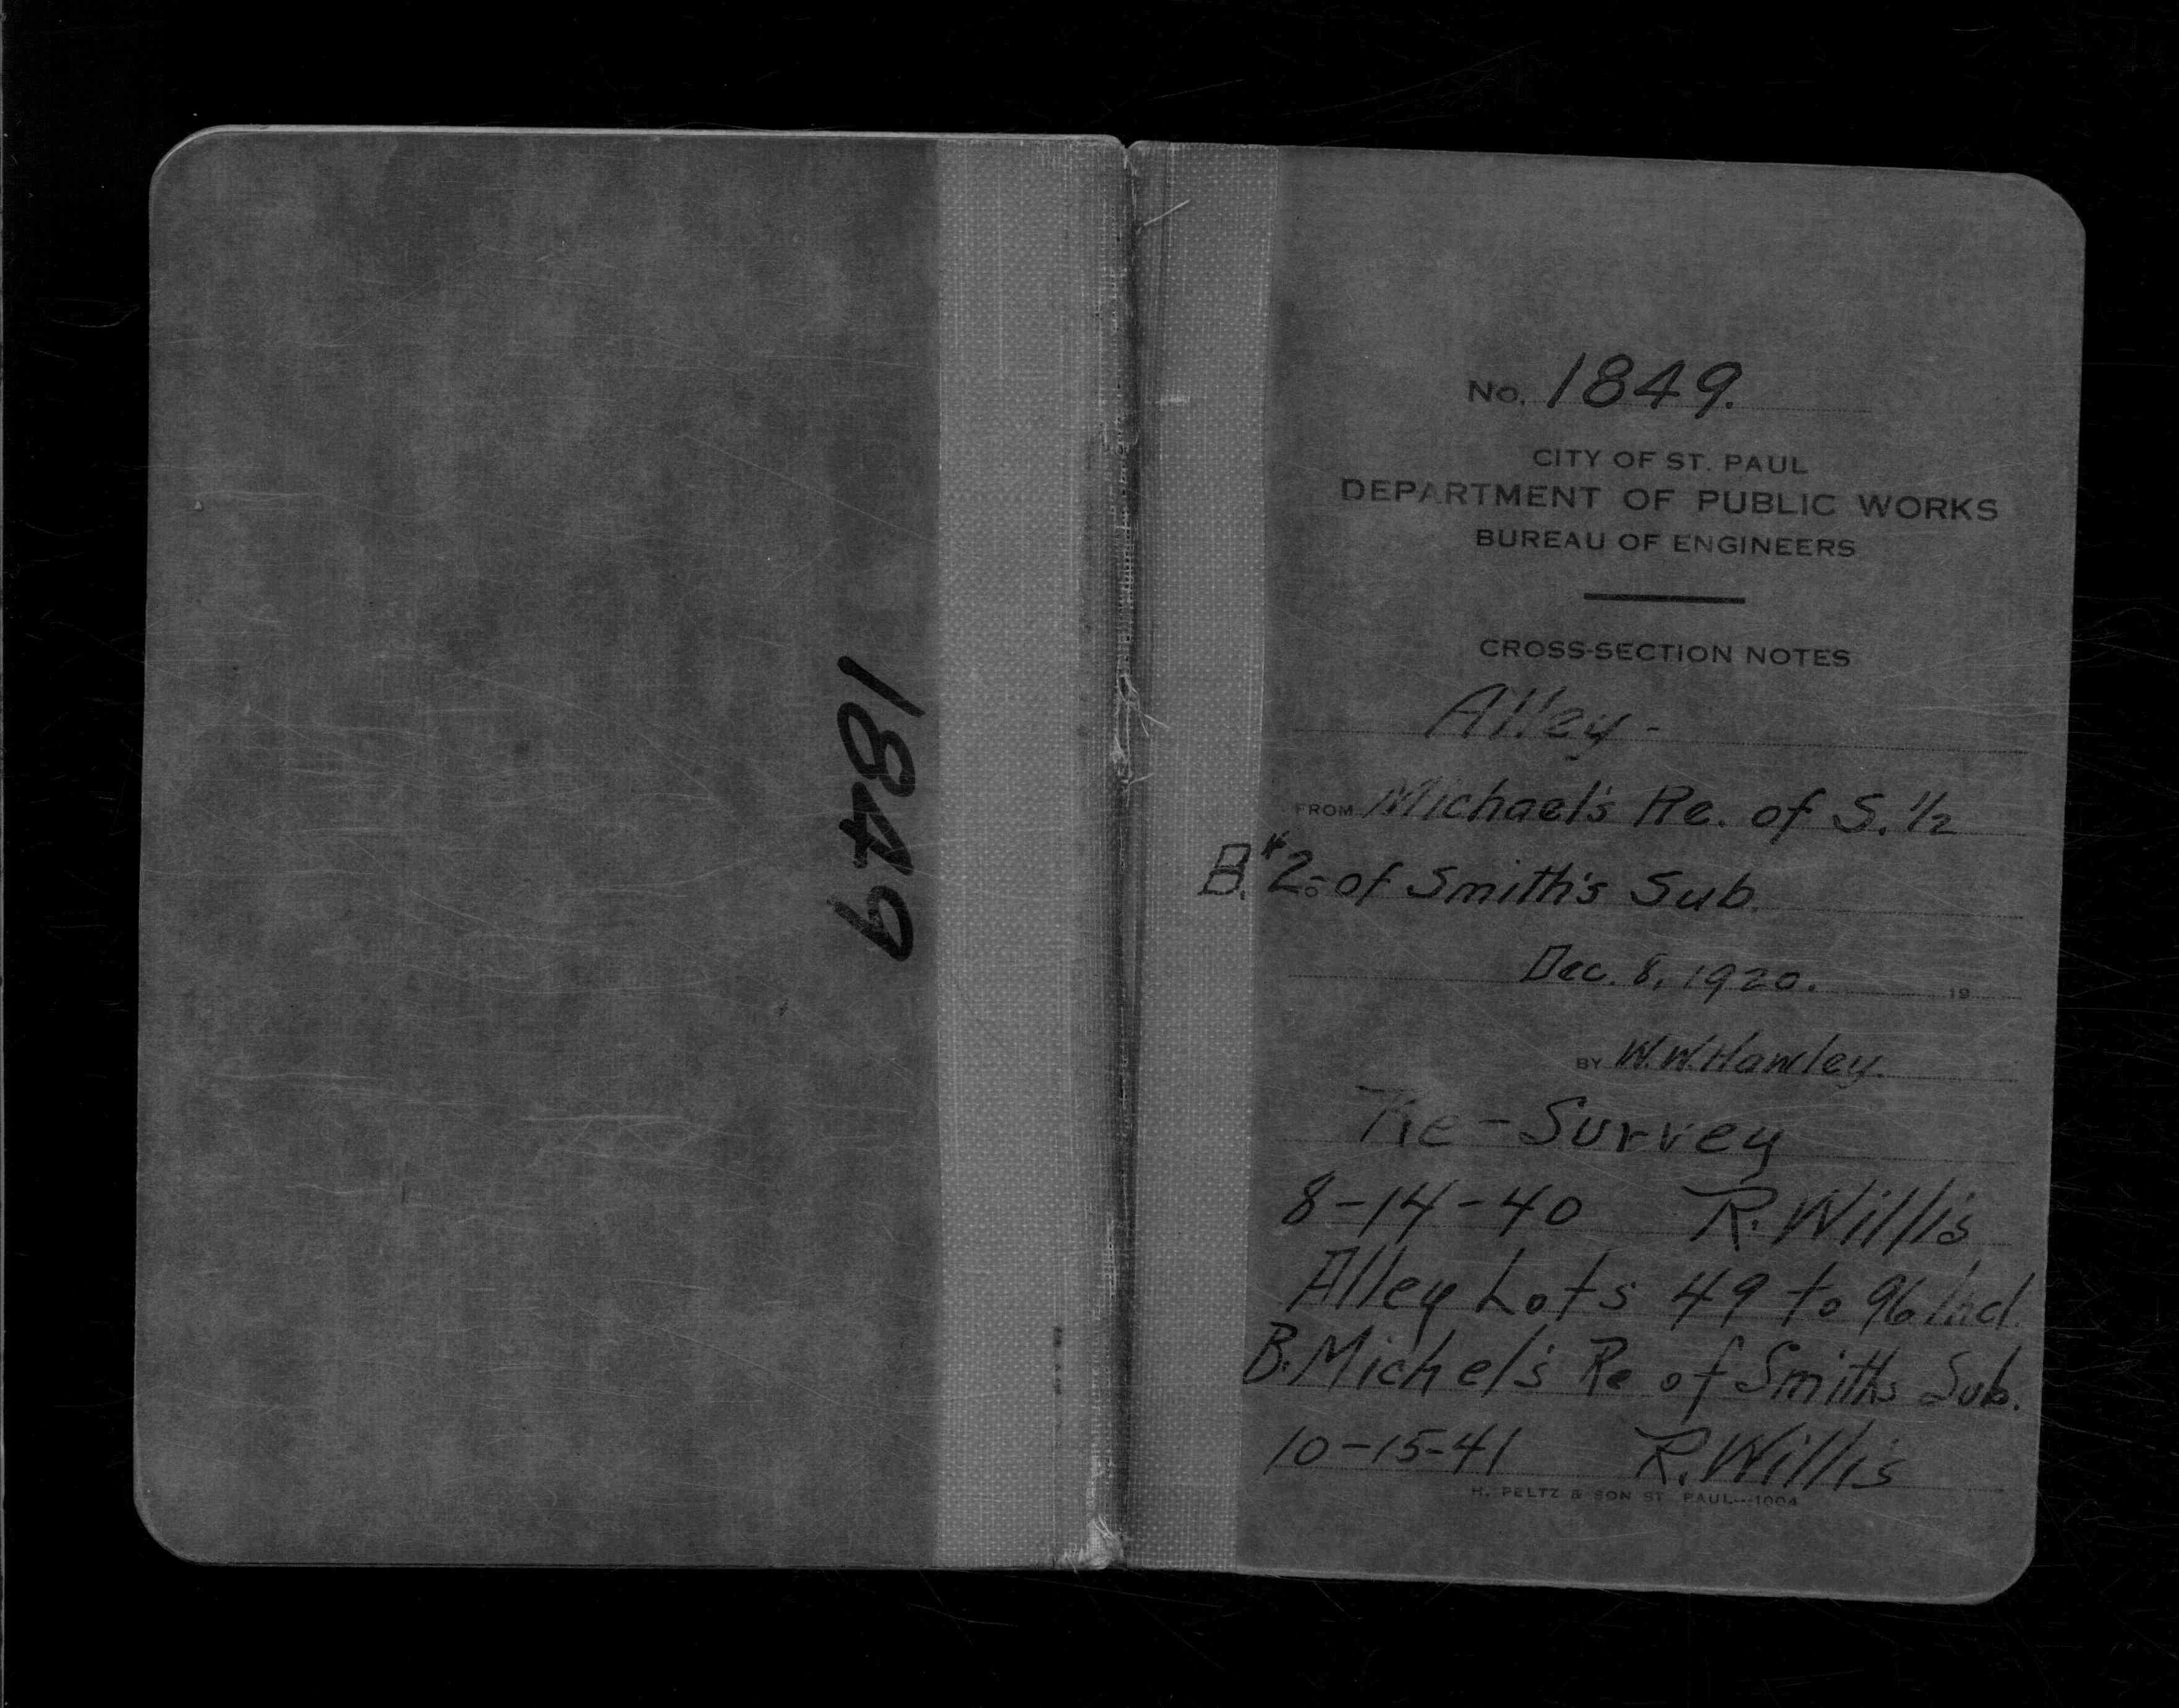 1849
No. 1849.
CITY OF ST. PAUL
DEPARTMENT OF PUBLIC WORKS
BUREAU OF ENGINEERS
CROSS-SECTION NOTES
Alley-
FROM Michael's Re. of S. 1/2
B.#2 - of Smith's Sub.
Dec. 8, 1920. 19
BY W.W.Hawley.
Re-Survey
8-14-40 R. Willis
Alley Lots 49 to 96 Incl.
B. Michel's Re of Smiths Sub.
10-15-41 R. Willis
H. PELTZ & SON ST. PAUL---1004